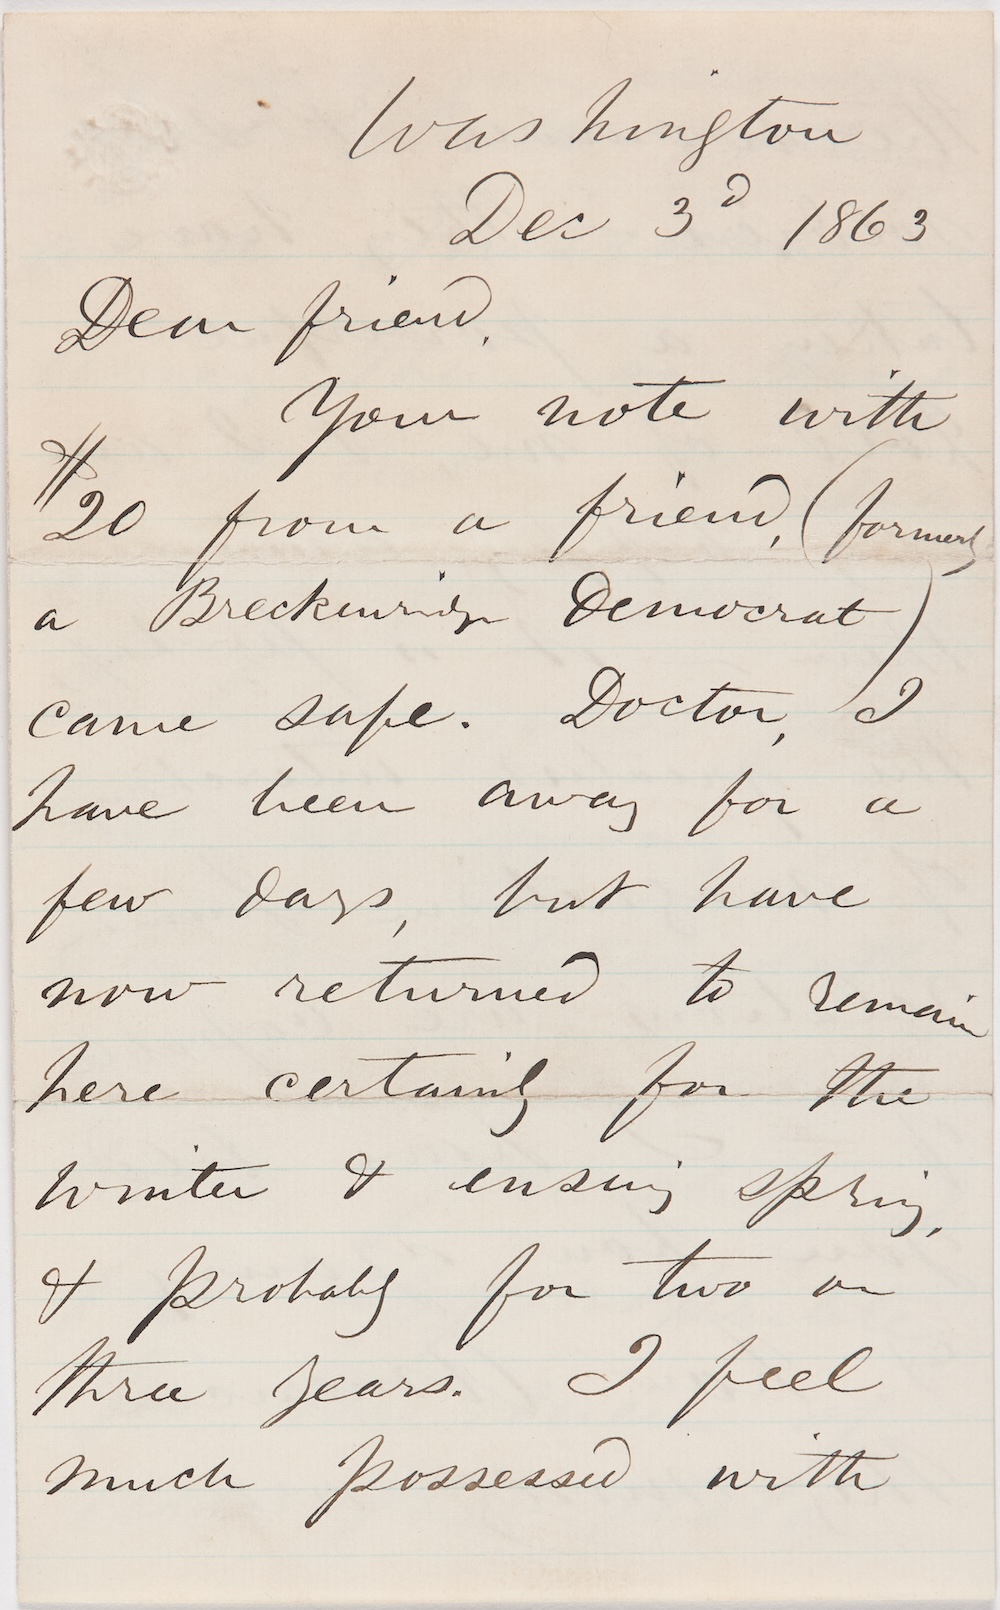 Washington
Dec 3d 1863
Dear friend,
Your note with
$20 from a friend, (formerly
a Breckenridge Democrat)
came safe. Doctor, I
have been away for a
few days, but have
now returned to remain
here certainly for the
winter & ensuing spring,
& probably for two or
three years. I feel
much possessed with